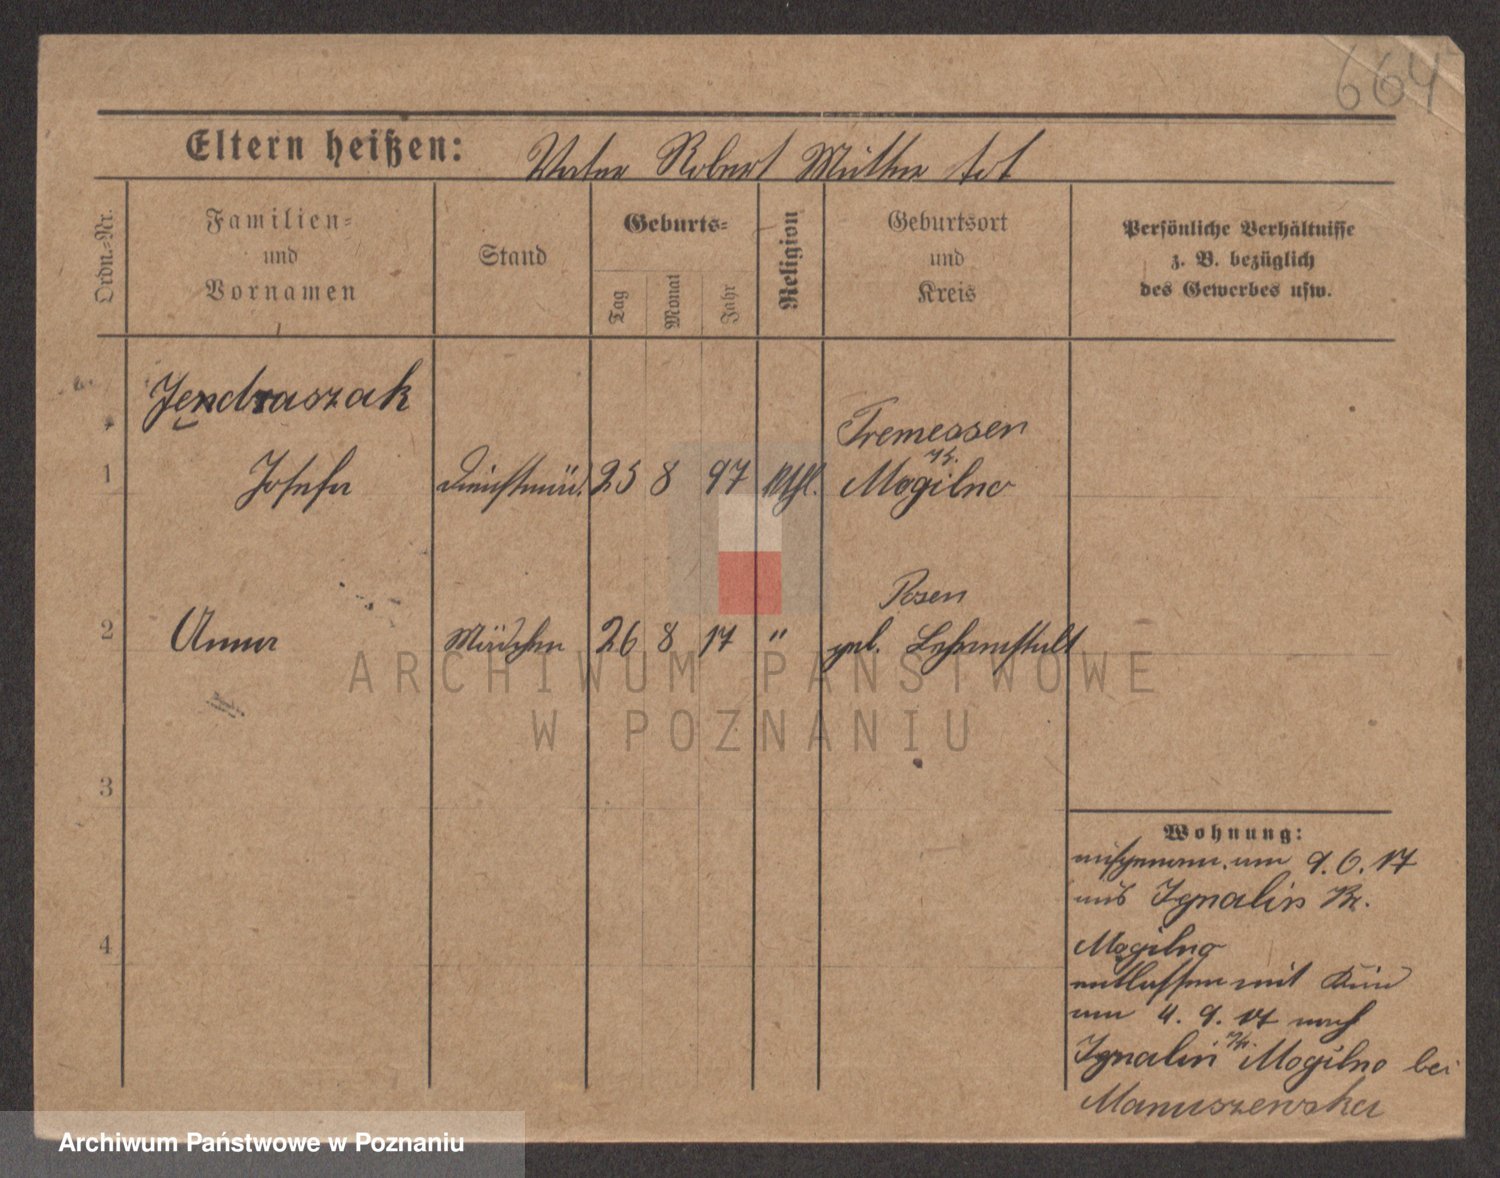 664
Eltern heißen: Vater Robert Mutter tot
Ordn.-Nr.
Familien-
und
Vornamen
Stand
Geburts-
Tag
Monat
Jahr
Religion
Geburtsort
und
Kreis
Persönliche Verhältnisse
z. B. bezüglich
des Gewerbes usw.
Jendraszak
Tremessen
1 Josefa Dienstmäd. 25 8 97 kthl. Mogilno
Posen
2 Anna Mädchen 26 8 17 " geb. Lehranstalt
3
4
Wohnung:
aufgenomm. am 9. 6. 17
aus Ignalin Kr.
Mogilno
entlassen mit Kind
am 4. 9. 17 nach
Ignalin Kr. Mogilno bei
Manuszewska
ARCHIWUM PAŃSTWOWE
W POZNANIU
Archiwum Państwowe w Poznaniu